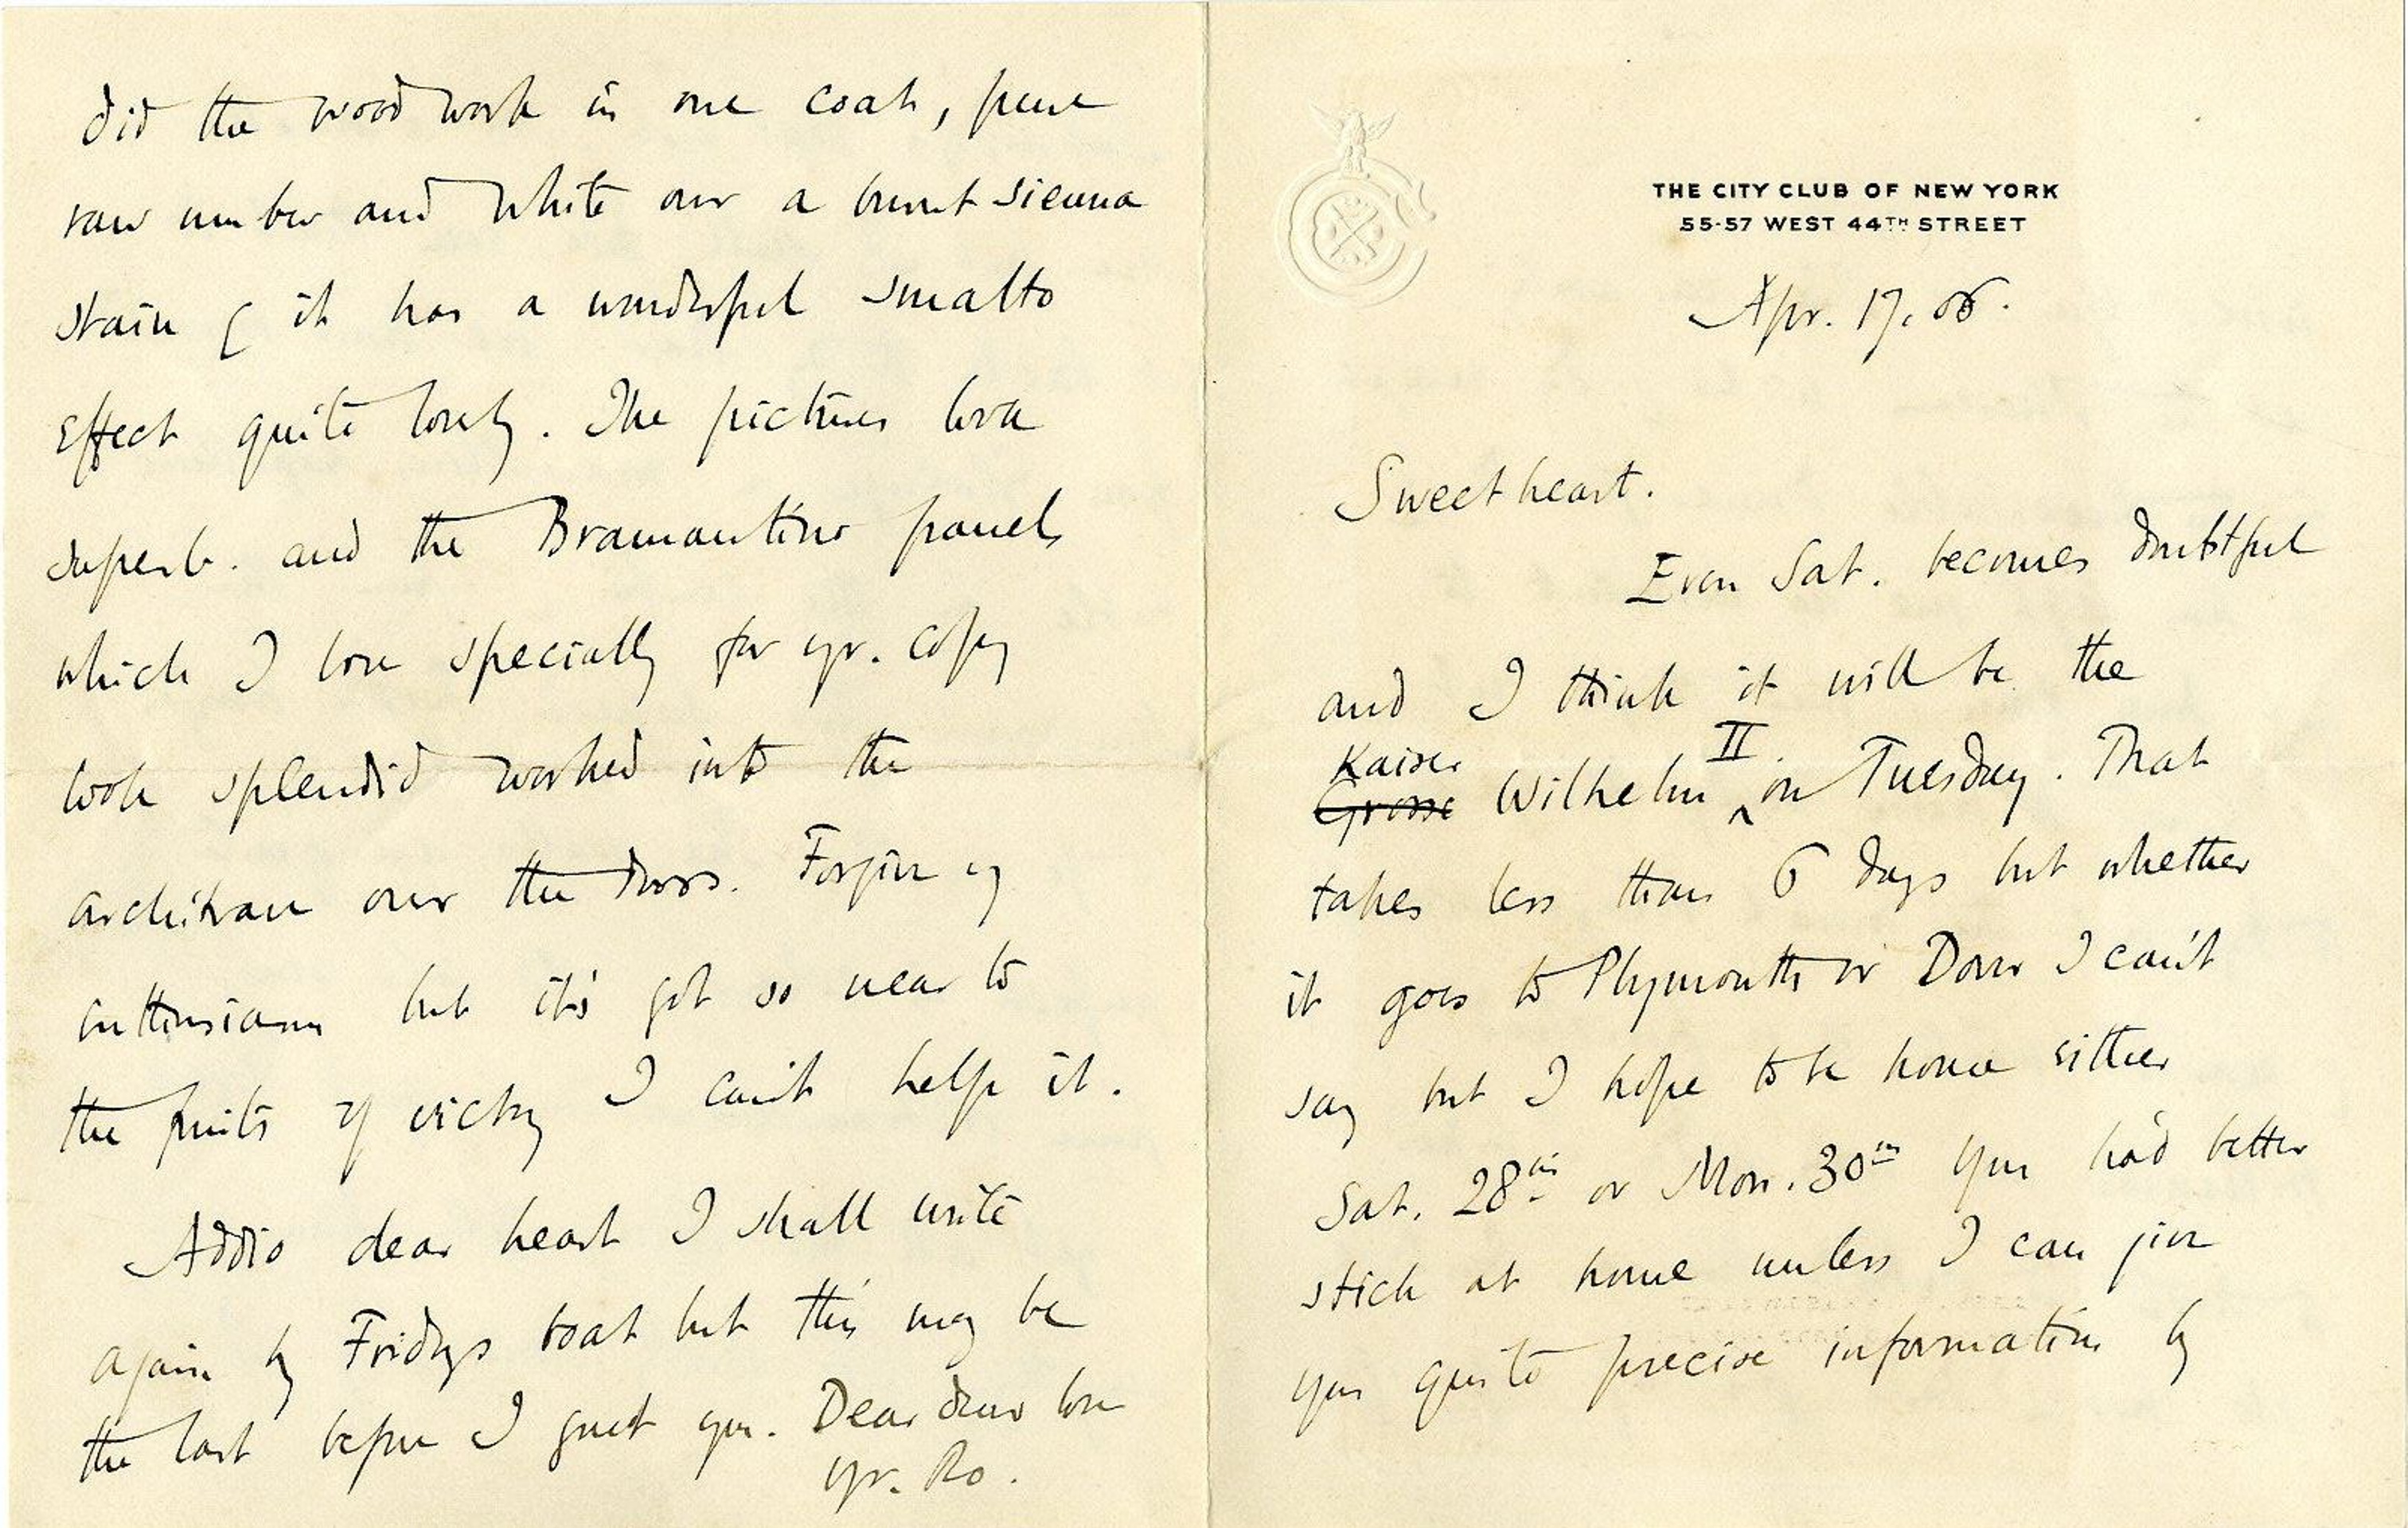 THE CITY CLUB OF NEW YORK
55-57 WEST 44TH STREET
Apr. 17. 06.
Sweetheart.
Even Sat. becomes doubtful
and I think it will be the
Kaiser II.
Grosse Wilhelm ^ on Tuesday. That
takes less than 6 days but whether
it goes to Plymouth or Dover I can't
say but I hope to be home either
Sat. 28th or Mon. 30th You had better
stick at home unless I can give
you quite precise information by
did the woodwork in one coat, pure
raw umber and white over a burnt sienna
stain & it has a wonderful smalto
effect quite lovely. The pictures look
superb. and the Bramantino panels
which I love specially for yr. copy
look splendid worked into the
architrave over the doors. Forgive my
enthusiasm but it's got so near to
the fruits of victory I can't help it.
Addio dear heart I shall write
again by Fridays boat but this may be
the last before I greet you. Dear dear love
yr. Ro.